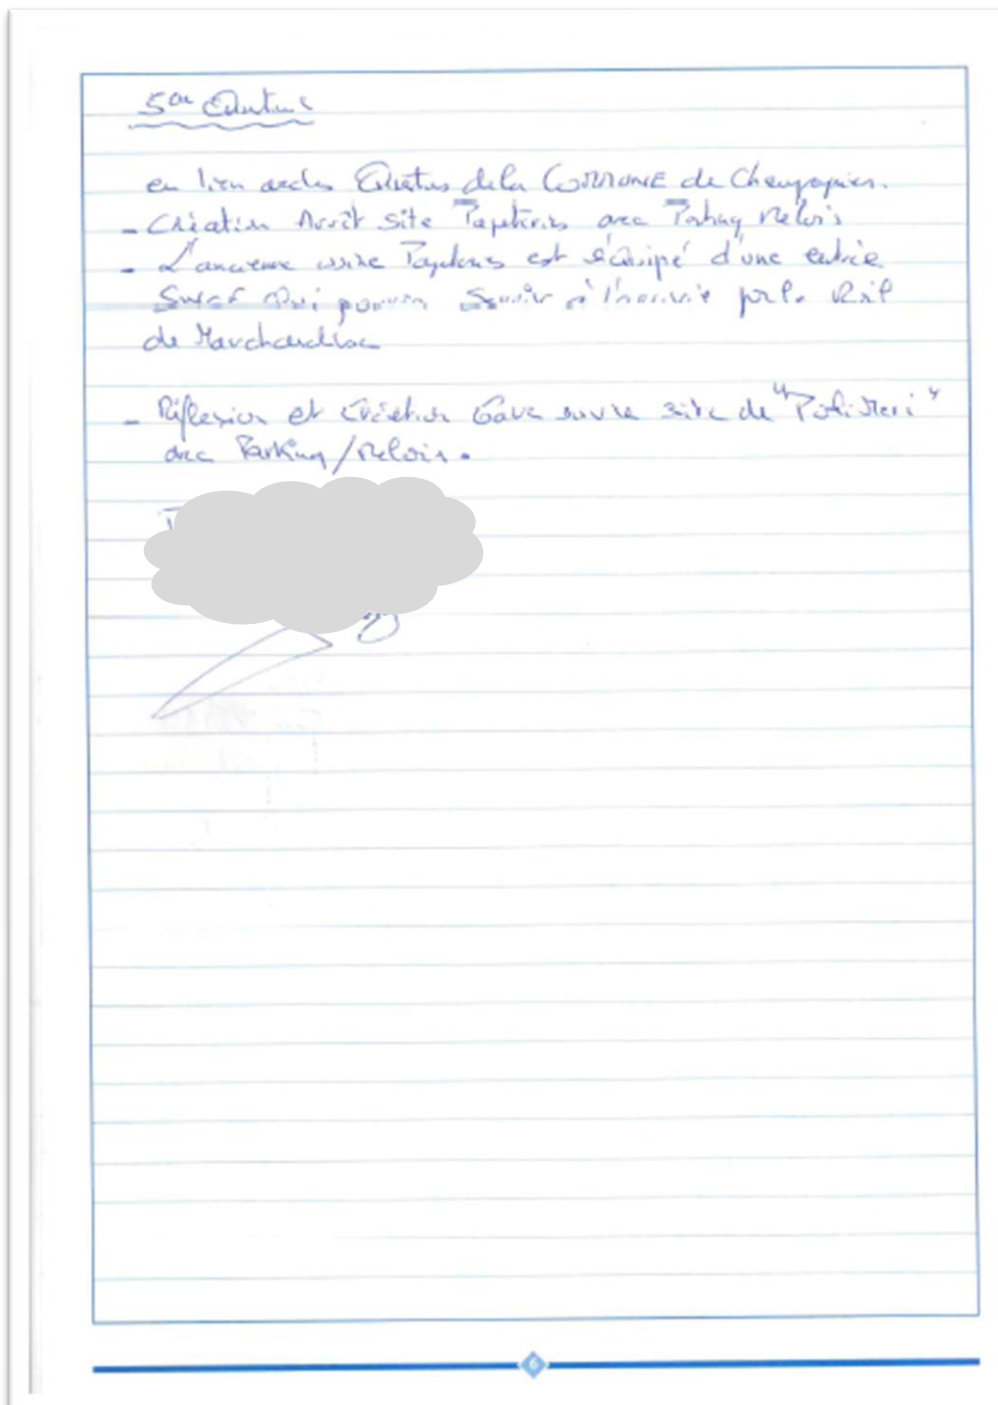 5em
en lien avec les de la COMMUNE de Champagnier.
- Création Arrêt Site Papeteries avec Parking Relais
- L'ancienne usine Papeteries est équipé d'une entrée
SNCF Qui pourra Servir à l' par le Rail
de Marchandises
- Réflexion et Création Gare sur le site de "Polimeri"
avec Parking/Relais.
6